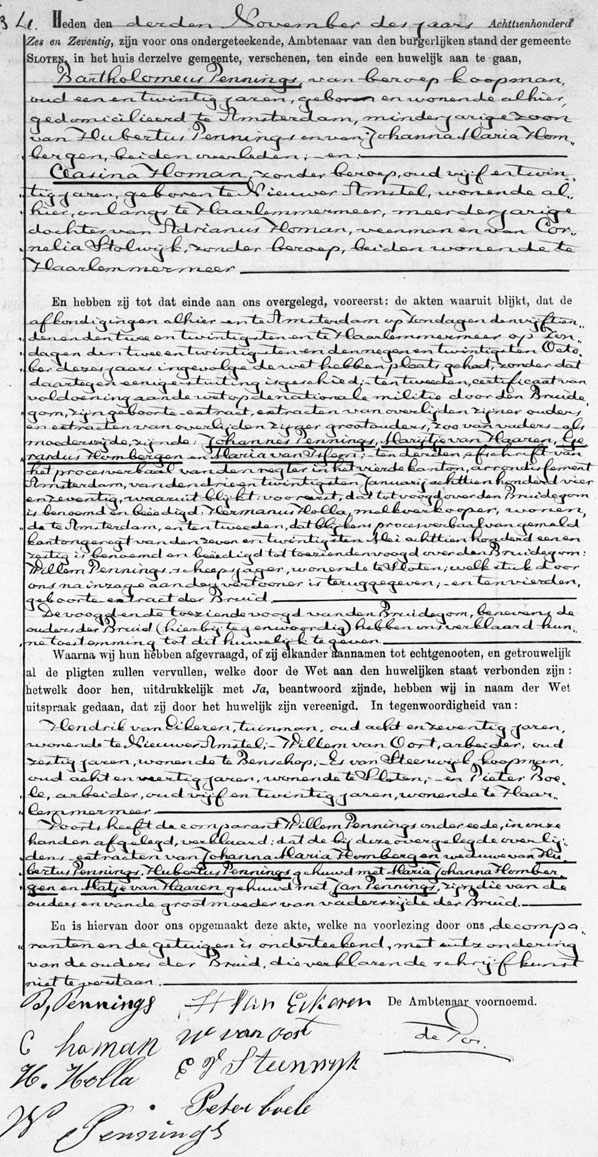 34. Heden den derden November des jaars Achttienhonderd
Zes en Zeventig, zijn voor ons ondergeteekende, Ambtenaar van den burgerlijken stand der gemeente
SLOTEN, in het huis derzelve gemeente, verschenen, ten einde een huwelijk aan te gaan,
Bartholomeus Pennings, van beroep koopman,
oud een en twintig jaren, geboren en wonende alhier,
gedomicilieerd te Amsterdam, minderjarige zoon
van Hubertus Pennings en van Johanna Maria Hom-
bergen, beiden overleden; en:
Clasina Homan, zonder beroep, oud vijf en twin-
tig jaren, geboren te Nieuwer Amstel, wonende al-
hier, onlangs te Haarlemmermeer, meerderjarige
dochter van Adrianus Homan, veenman en van Cor-
nelia Stolwijk, zonder beroep, beiden wonende te
Haarlemmermeer
En hebben zij tot dat einde aan ons overgelegd, vooreerst: de akten waaruit blijkt, dat de
afkondigingen alhier en te Amsterdam op Zondagen den vijftien-
den en den twee en twintigsten en te Haarlemmermeer op Zon-
dagen den twee en twintigsten en den negen en twintigsten Octo-
ber dezes jaars ingevolge de wet hebben plaats gehad, zonder dat
daartegen eenige stuiting is geschied; ten tweeden, certificaat van
voldoening aan de wet op de nationale militie door den Bruide-
gom, zijn geboorte-extract, extracten van overlijden zijner ouders
en extracten van overlijden zijner grootouders, zoo van vaders- als
moederszijde, zijnde: Johannes Pennings, Marijtje van Haaren, Ge-
rardus Hombergen en Maria van; ten derden, afschrift van
het procesverbaal van den regter in het vierde kanton, arrondissement
Amsterdam, van den drie en twintigsten Januarij achttien honderd vier
en zeventig, waaruit blijkt: vooreerst, dat tot voogd over den Bruidegom
is benoemd en beëedigd Hermanus Holla, melkverkooper, wonen-
de te Amsterdam, en ten tweeden, dat blijkens procesverbaal van gemeld
kantongeregt van den zeven en twintigsten Mei achttien honderd een en
zestig is benoemd en beëedigd tot toezienden voogd over den Bruidegom:
Willem Pennings, scheepsjager, wonende te Sloten; welk stuk door
ons na inzage aan den vertooner is teruggegeven; en ten vierden,
geboorte extract der Bruid
De voogd en de toeziende voogd van den Bruidegom, benevens de
ouders der Bruid (hierbij tegenwoordig) hebben ons verklaard hun-
ne toestemming tot dit huwelijk te geven
Waarna wij hun hebben afgevraagd, of zij elkander aannamen tot echtgenooten, en getrouwelijk
al de pligten zullen vervullen, welke door de Wet aan den huwelijken staat verbonden zijn:
hetwelk door hen, uitdrukkelijk met Ja, beantwoord zijnde, hebben wij in naam der Wet
uitspraak gedaan, dat zij door het huwelijk zijn vereenigd. In tegenwoordigheid van:
Hendrik van Eikeren, tuinman, oud acht en zeventig jaren,
wonende te Nieuwer Amstel; Willem van Oort, arbeider, oud
zestig jaren, wonende te Benschop; Es van Steenwijk, koopman,
oud acht en veertig jaren, wonende te Sloten; en Pieter Boe-
le, arbeider, oud vijf en twintig jaren, wonende te Haar-
lemmermeer
Voorts heeft de comparant Willem Pennings onder eede, in onze
handen afgelegd, verklaard: dat de bij deze overgelegde overlij-
dens-extracten van Johanna Maria Hombergen weduwe van Hu-
bertus Pennings, Hubertus Pennings gehuwd met Maria Johanna Homber-
gen en Matje van Haaren gehuwd met Jan Pennings, zijn die van de
ouders en van de grootmoeder van vaderszijde der Bruid.
En is hiervan door ons opgemaakt deze akte, welke na voorlezing door ons, de compa-
ranten en de getuigen is onderteekend, met uitzondering
van de ouders der Bruid, die verklaarde schrijfkunst
niet te verstaan.
B, Pennings H Van Eikeren De Ambtenaar voornoemd.
C homan W van oost
H. Holla E V Steenwyk
Peter boele
W Pennings